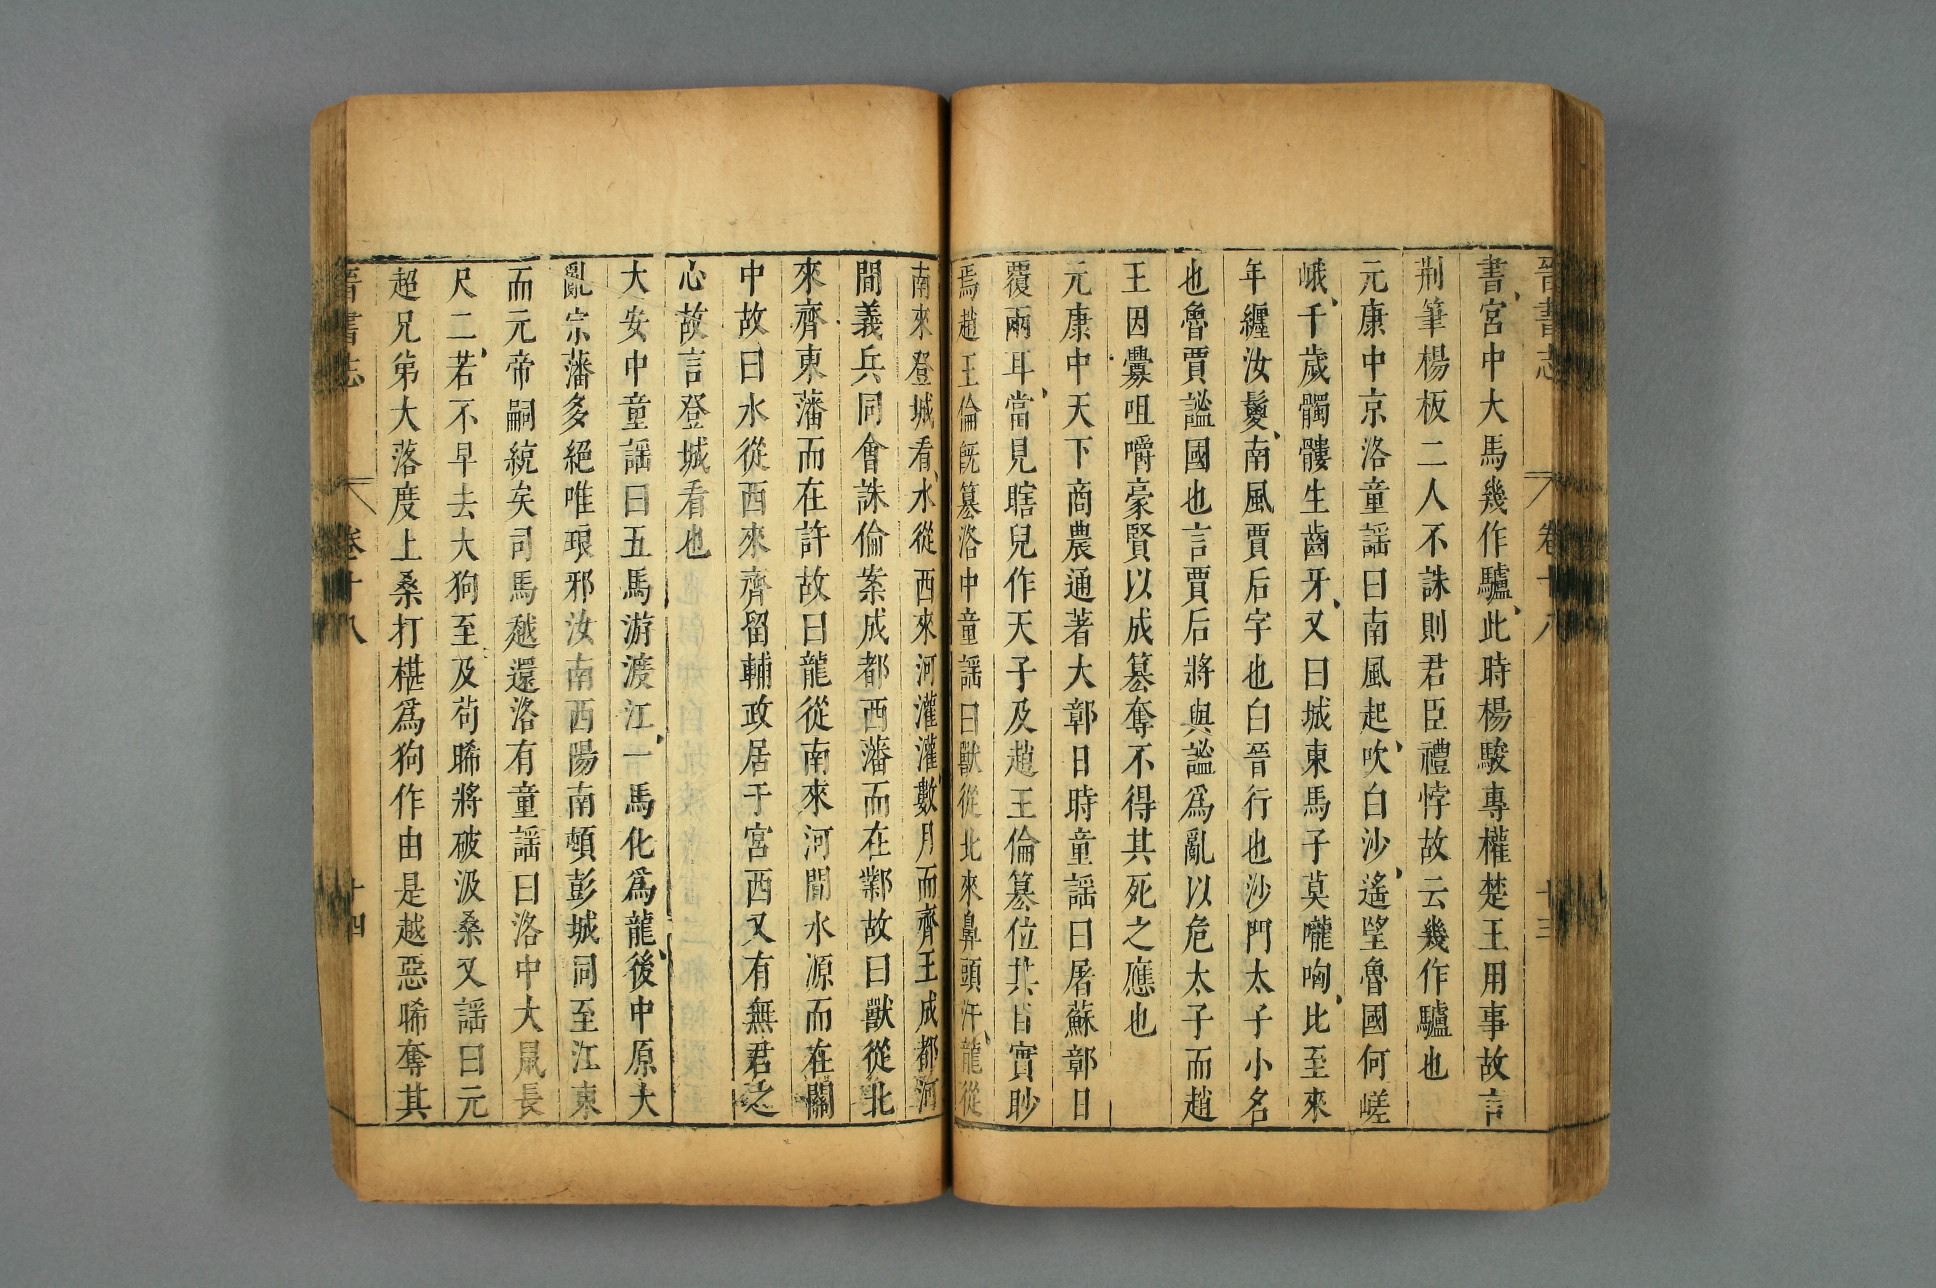 晉書志 卷十八 十三
書宮中大馬幾作驢此時楊駿專權楚王用事故言
荆筆楊板二人不誅則君臣禮悖故云幾作驢也
元康中京洛童謡曰南風起吹白沙遙望魯國何嵯
峨千歲髑髏生齒牙又曰城東馬子莫嚨哅比至來
年纏汝鬉南風賈后字也白晉行也沙門太子小名
也魯賈謐國也言賈后將與謐爲亂以危太子而趙
王因釁咀嚼豪賢以成篡奪不得其死之應也
元康中天下商農通著大鄣日時童謡曰屠蘇鄣日
覆兩耳當見瞎兒作天子及趙王倫篡位其目實眇
焉趙王倫旣篡洛中童謡曰獸從北來鼻頭汗龍從
南來登城看水從西來河灌灌數月而齊王成都河
間義兵同會誅倫案成都西藩而在鄴故曰獸從北
來齊東藩而在許故曰龍從南來河間水源而在關
中故曰水從西來齊留輔政居于宮西又有無君之
心故言登城看也
大安中童謡曰五馬游渡江一馬化爲龍後中原大
亂宗藩多絕唯琅邪汝南西陽南頓彭城同至江東
而元帝嗣統矣司馬越還洛有童謡曰洛中大鼠長
尺二若不早去大狗至及苟晞將破汲桑又謡曰元
超兄弟大落度上桑打椹爲狗作由是越惡晞奪其
晉書志 卷十八 十四